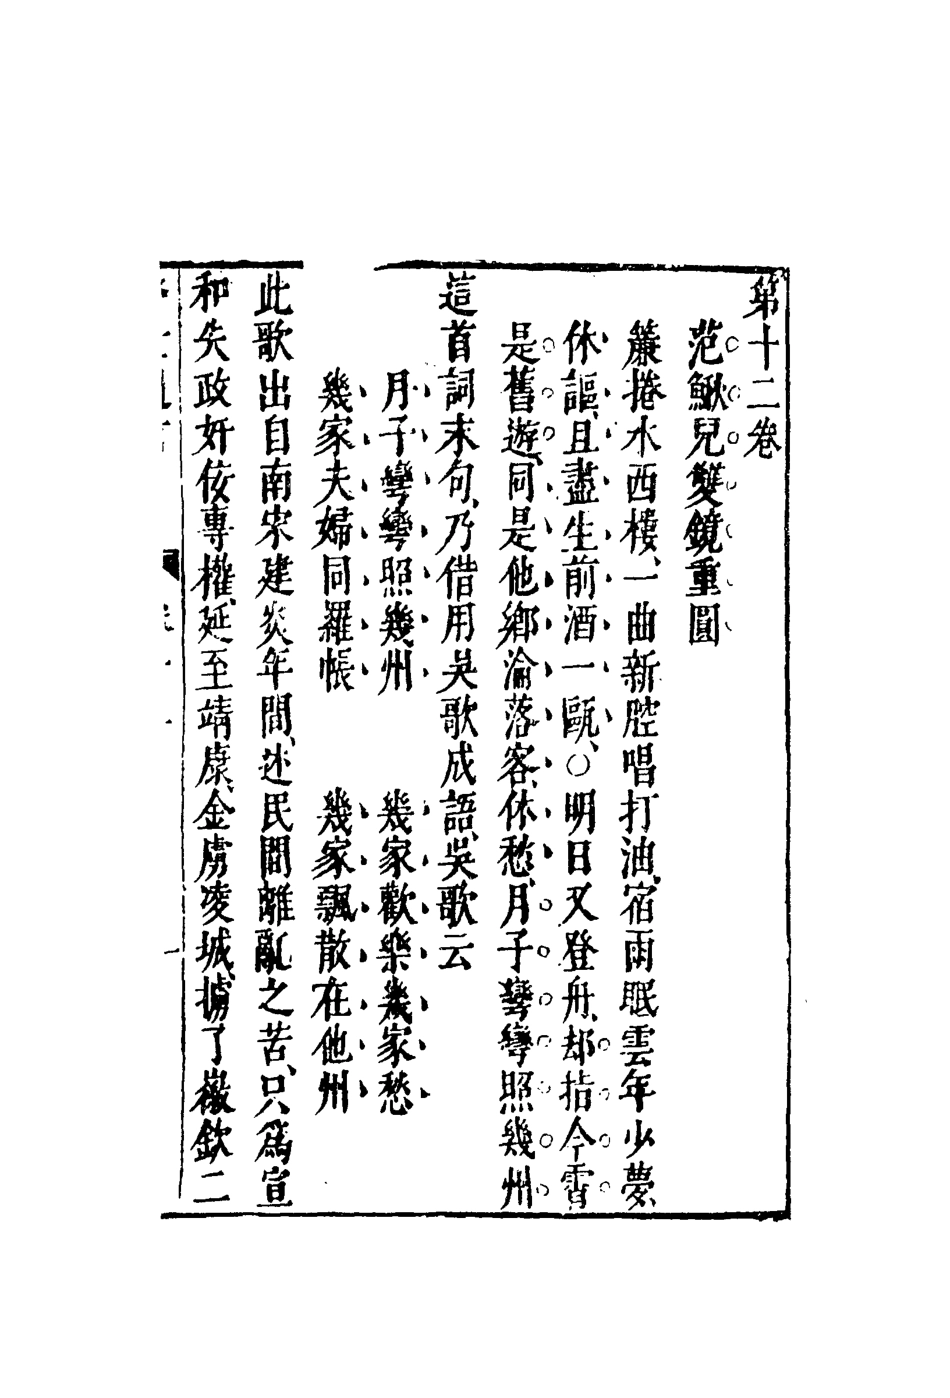 第十二卷
范鰍兒雙鏡重圓
簾捲水西樓、一曲新腔唱打油、宿雨眠雲年少夢、
休謳、且盡生前酒一甌、○明日又登舟、却指今宵
是舊遊、同是他鄉淪落客、休愁、月子彎彎照幾州
這首詞末句、乃借用吳歌成語、吳歌云
月子彎彎照幾州 幾家歡樂幾家愁
幾家夫婦同羅帳 幾家飄散在他州
此歌出自南宋建炎年間、述民間離亂之苦、只爲宣
和失政奸佞專權、延至靖康、金虜凌城、擄了徽欽二